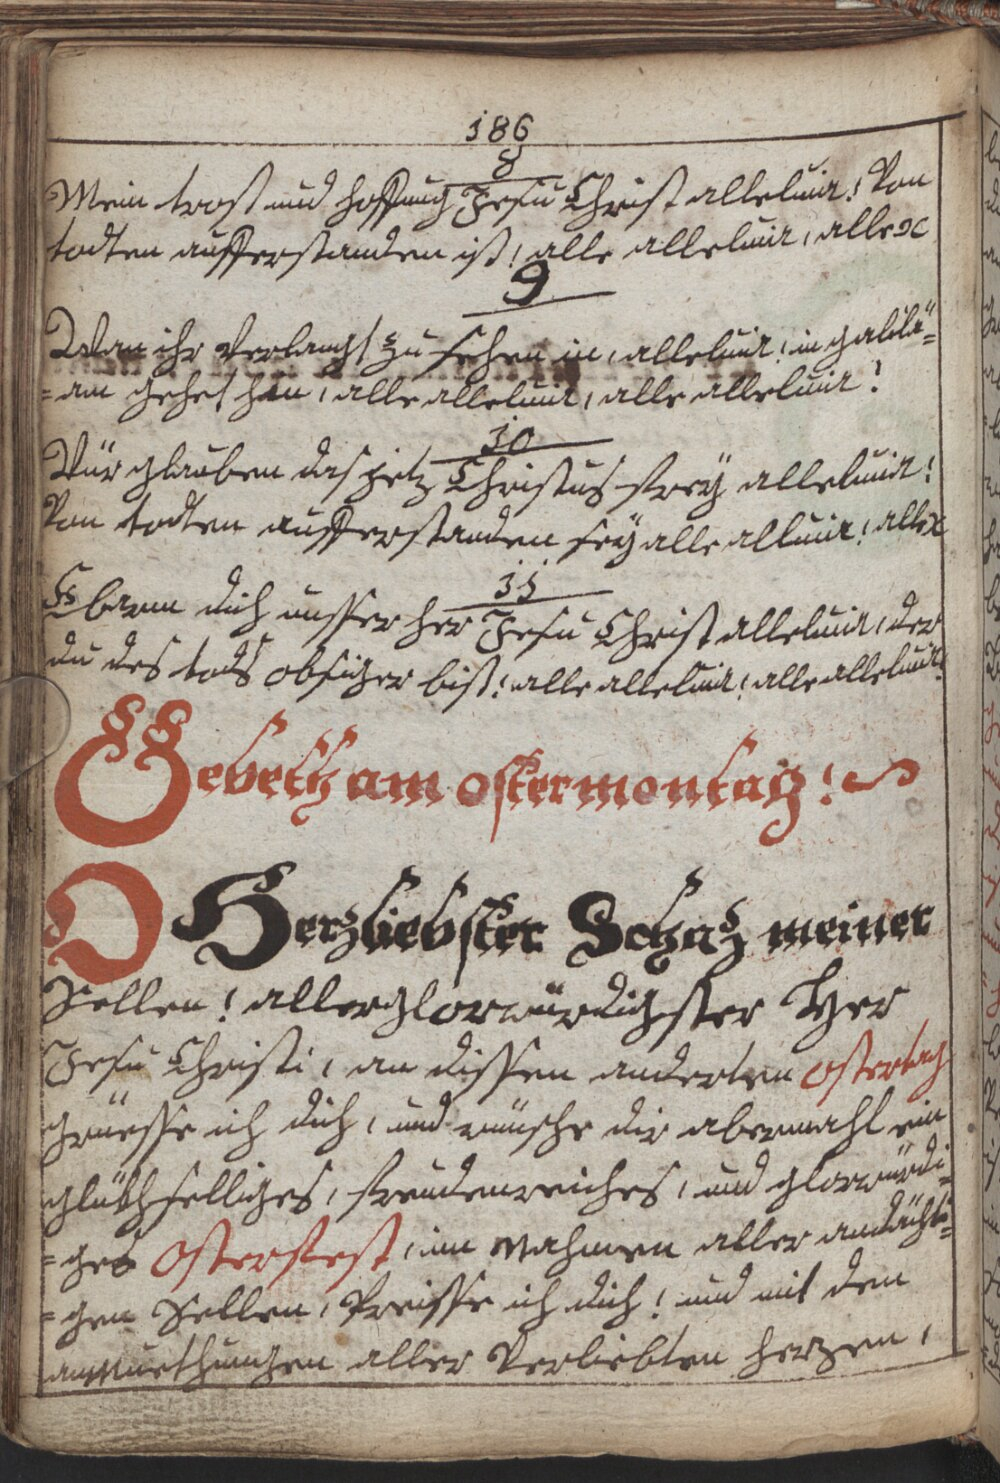 186
8
Mein trost und hoffnung Jesu Christ alleluia! Von
todten aufferstanden ist! alle alleluia, alle &c
9
Wan ihr verlangt zu sehen in, alleluia! in galilä¬
=am gehet hin, alle alleluia, alle alleluia!
10
Wür glauben das jetz Christus freÿ alleluia!
Von todten aufferstanden seÿ alle alluia! alle &c
11
Erbarm dich unsser her Jesu Christ alleluia, der
du des tods obsiger bist! alle alleluia! alle alleluia!
Gebeth am ostermontag!
O Herzliebster Schaz meiner
Sellen! allerglorwürdigster Her
Jesu Christi, an dissen anderten ostertag
grüesse ich dich, und wünsche dir abermahl ein
glükhselliges, freudenreiches, und glorwürdi¬
=ges Osterfest, im Nahmen aller andächti¬
=gen Sellen, Preisse ich dich! und mit den
anmuethungen aller Verliebten herzen,